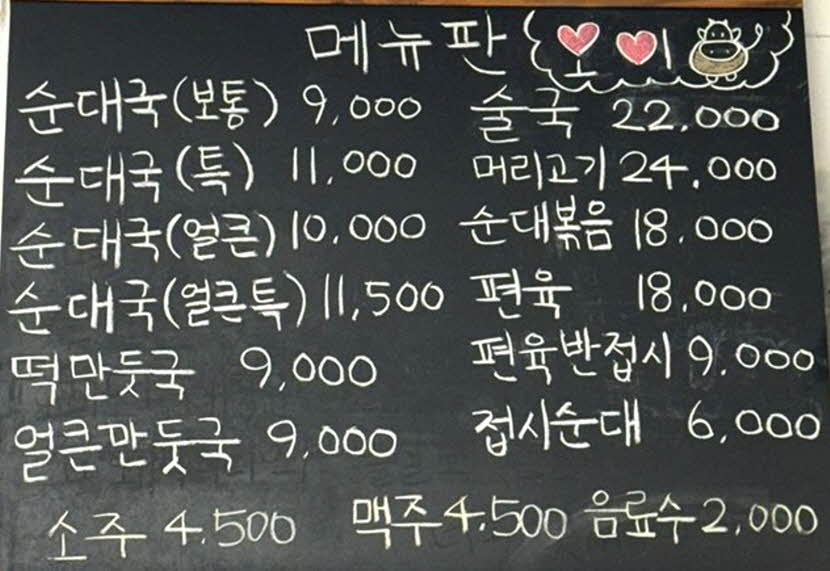 메뉴판 오이
순대국(보통) 9,000
순대국(특) 11,000
순대국(얼큰) 10,000
순대국(얼큰특) 11,500
떡만둣국 9,000
얼큰만둣국 9,000
술국 22,000
머리고기 24,000
순대볶음 18,000
편육 18,000
편육반접시 9,000
접시순대 6,000
소주 4,500 맥주 4,500 음료수 2,000